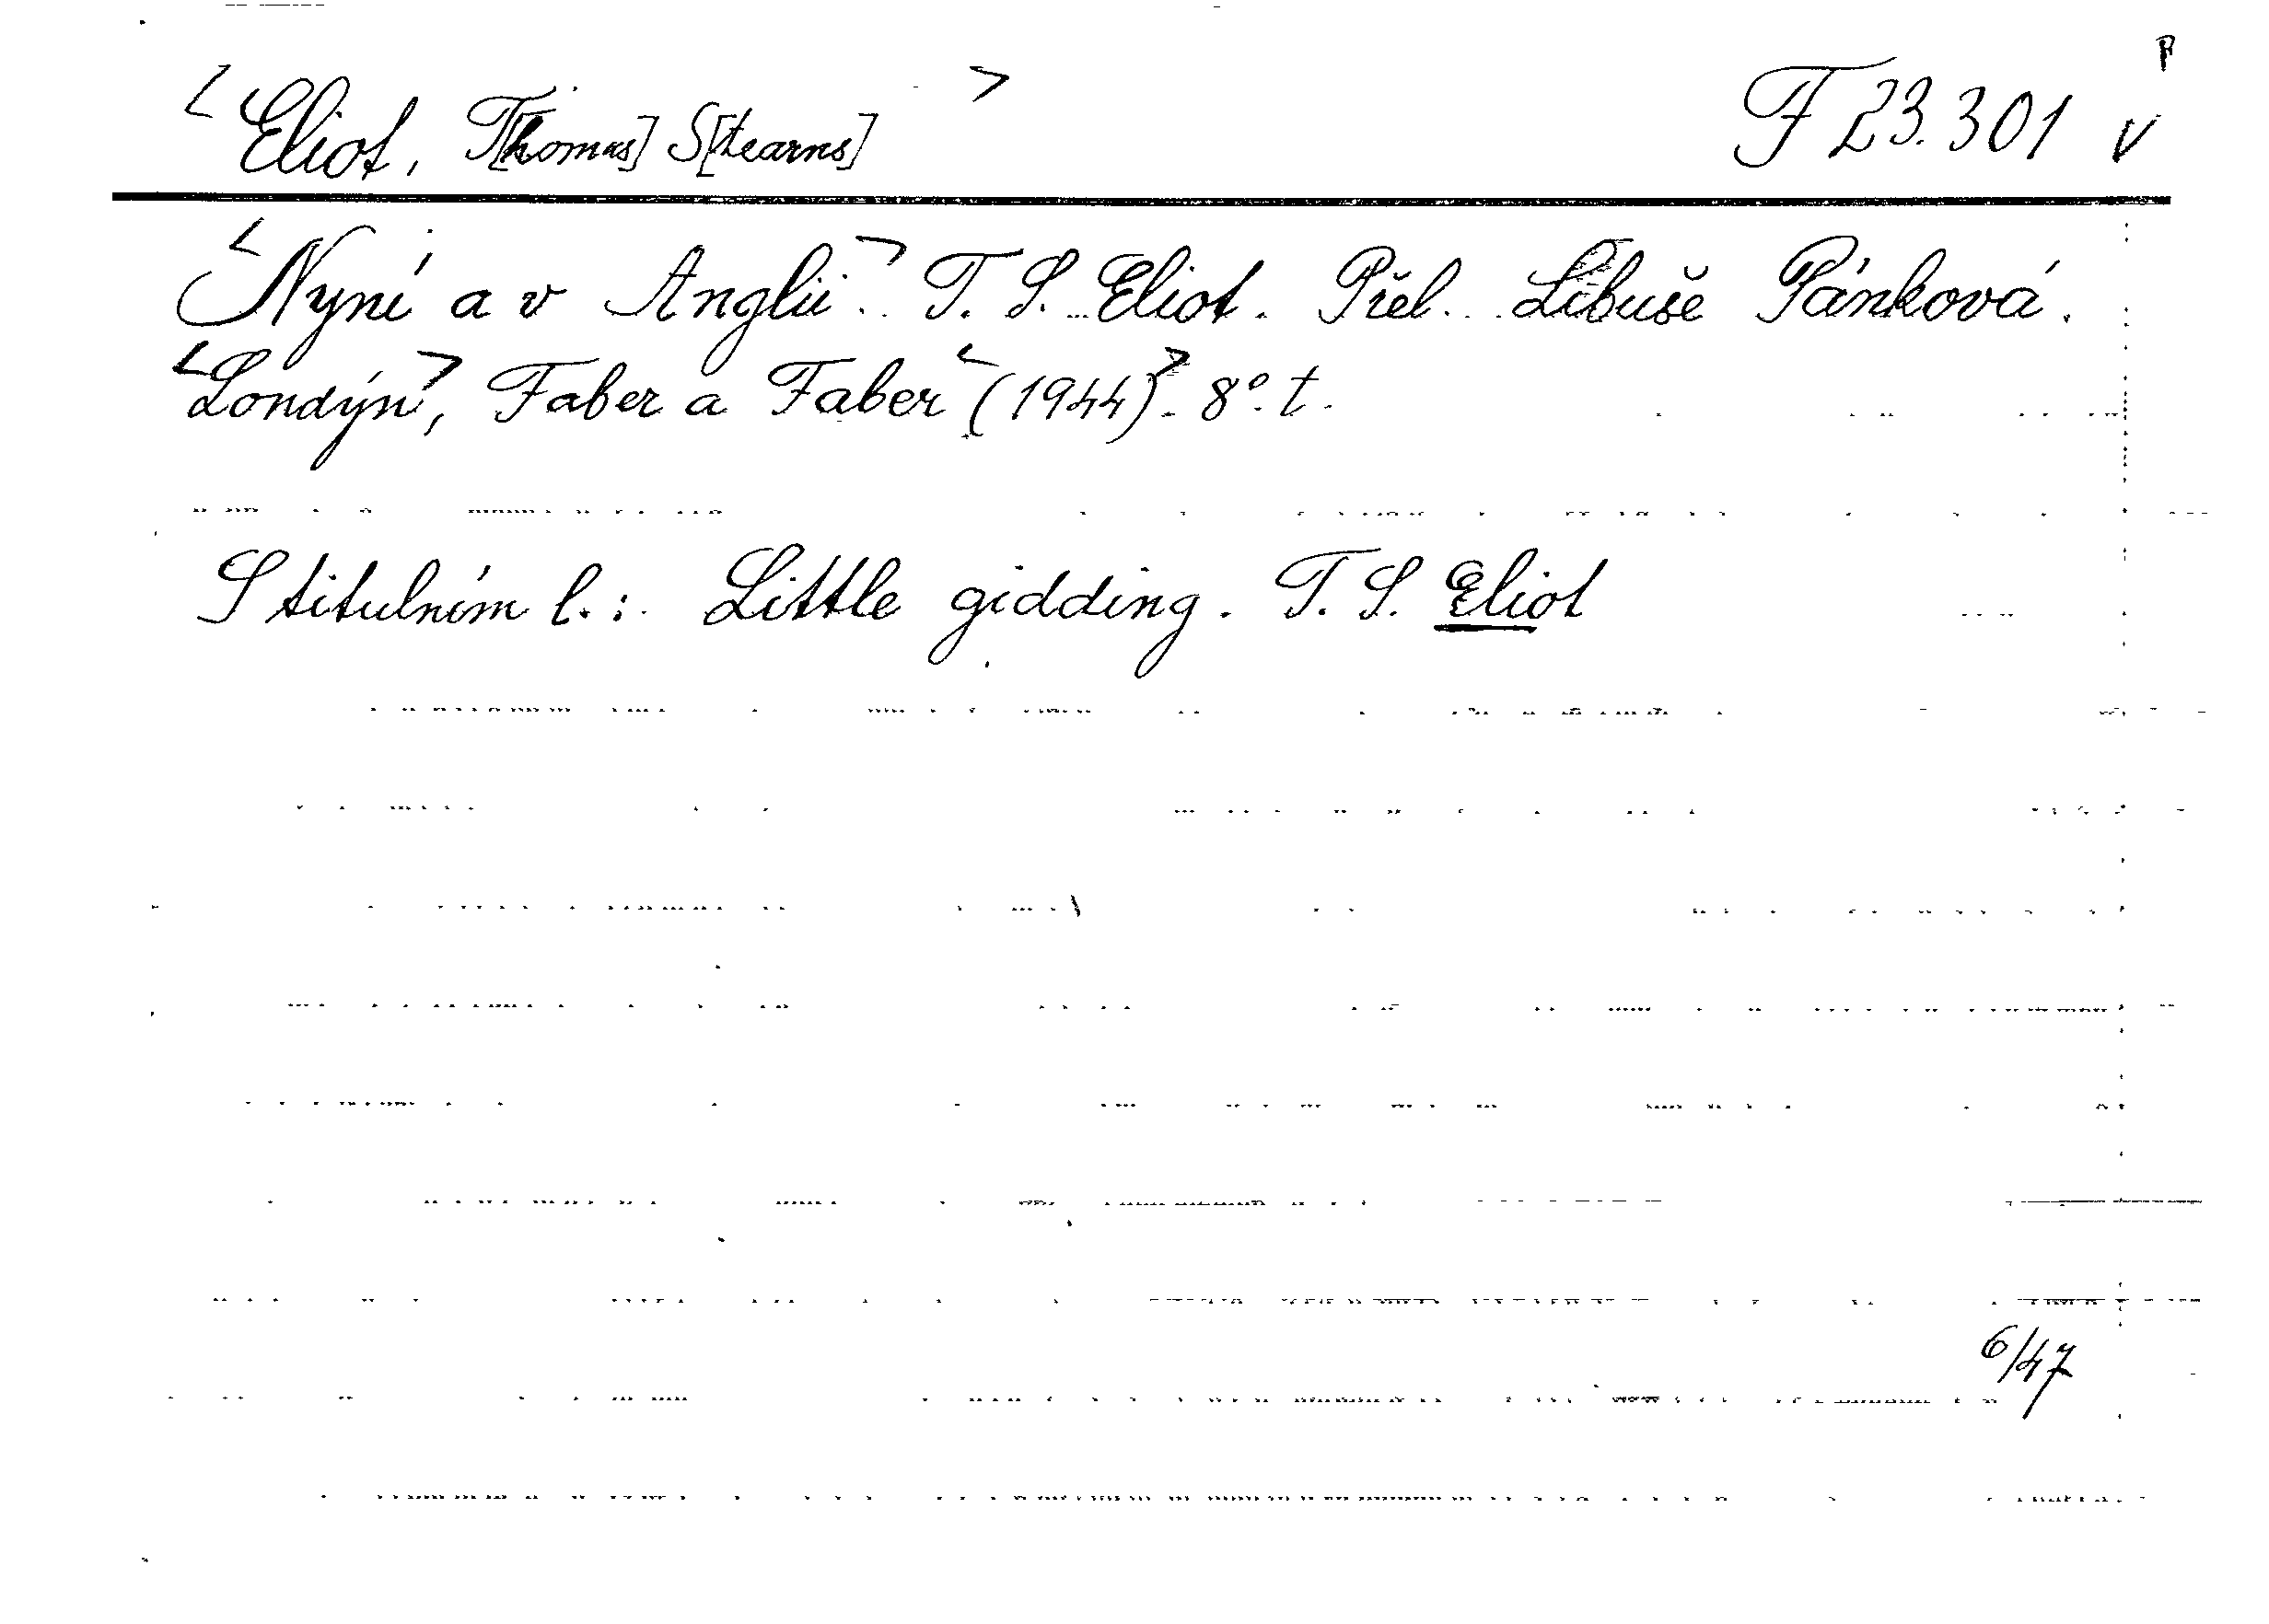 <Eliot, T[homas] S[tearns]> F 23.301 v
<Nyní a v Anglii.> T. S. Eliot. Přel. Libuše Pánková.
<Londýn>, Faber a Faber <(1944)>. 8°. t.
S titulním l.: Little gidding. T. S. Eliot
6/47